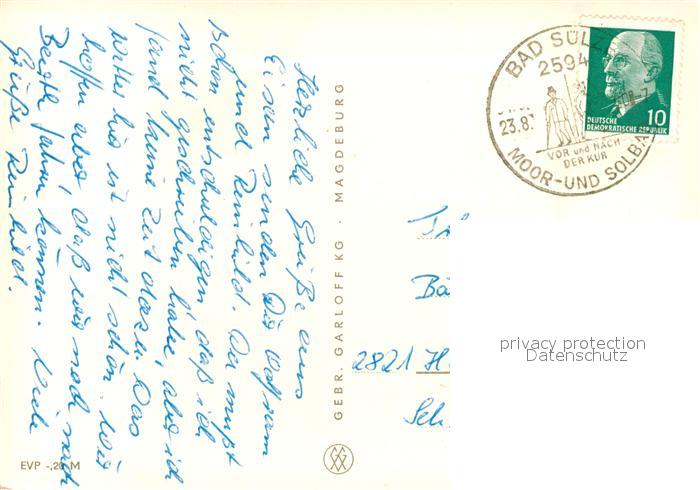 Herzliche Grüße aus
senden Dir
und Reinhild. Du mußt
schon entschuldigen daß ich
nicht geschrieben habe, aber ich
fand keine Zeit dazu. Das
Wetter hier ist nicht schön. Wir
hoffen aber daß wir noch nach
fahren können. Viele
Grüße Reinhild.
GEBR. GARLOFF KG · MAGDEBURG
EVP -,20 M
BAD SÜLZ
2594
23.8.
VOR und NACH
DER KUR
MOOR- UND SOLBA
10
DEUTSCHE
DEMOKRATISCHE REPUBLIK
2821 H
privacy protection
Datenschutz